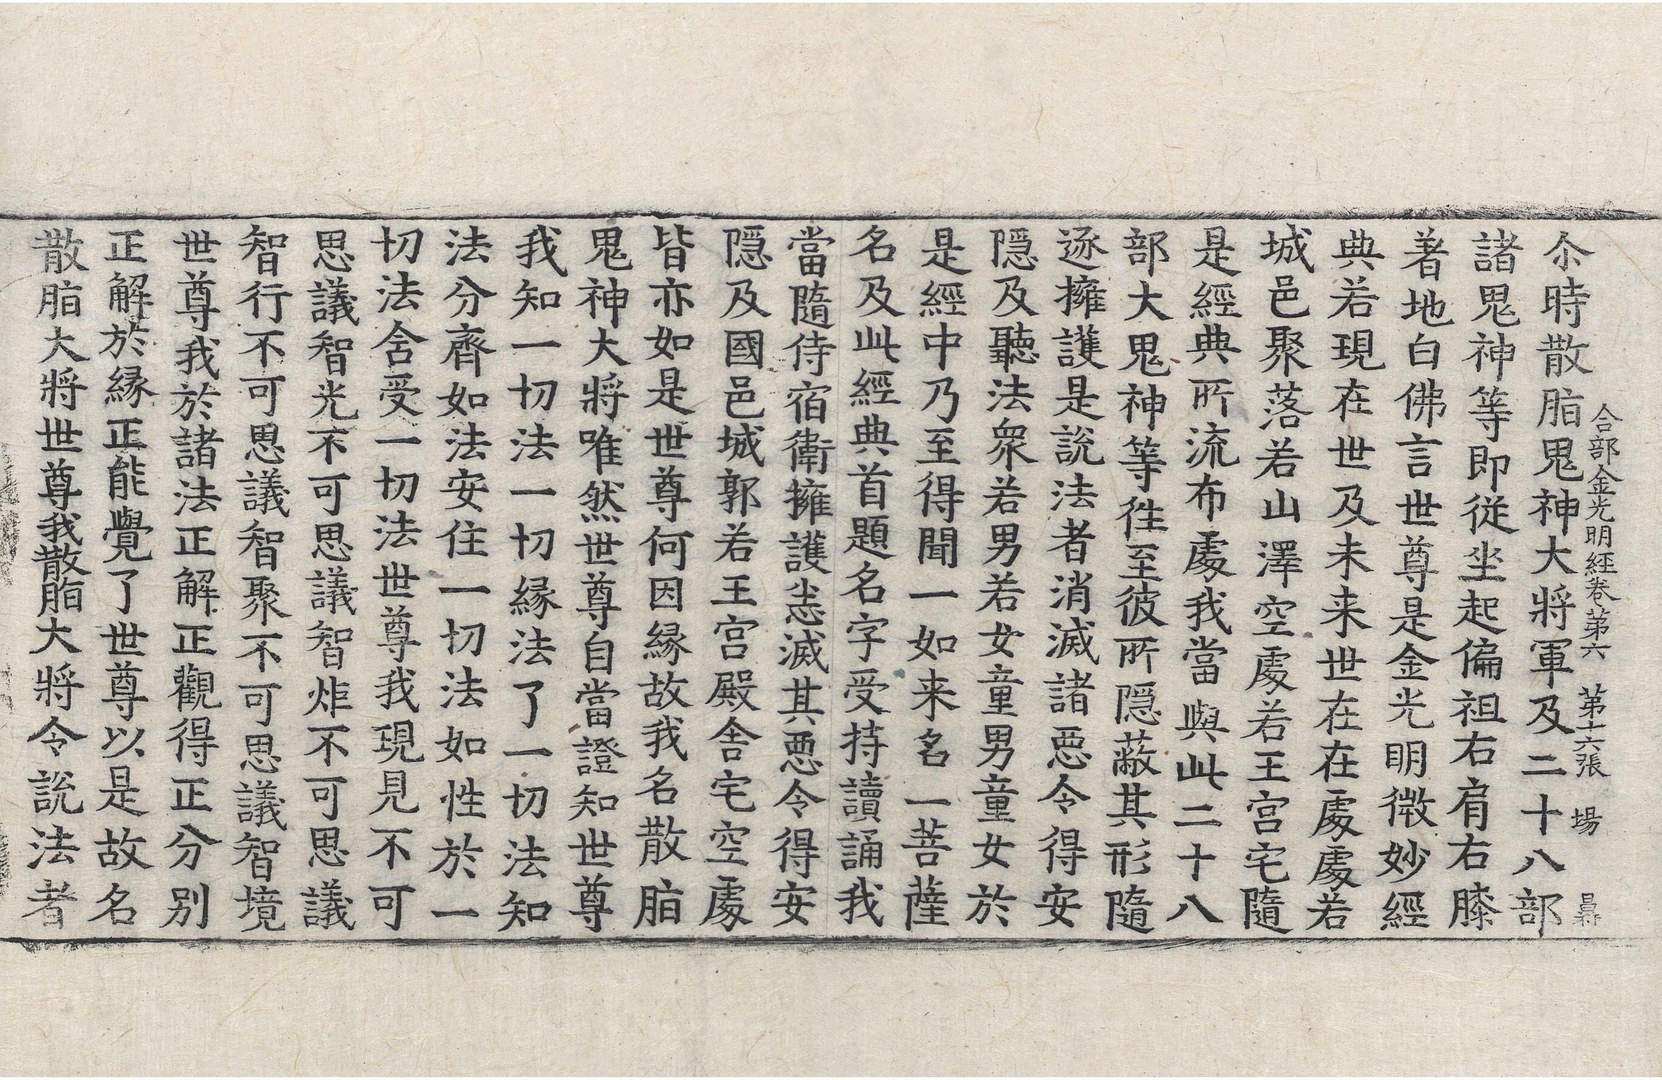 尒時散脂鬼神大將軍及二十八部
合部金光明經卷第六 第十六張 場
諸鬼神等即從坐起偏袒右肩右膝
著地白佛言世尊是金光明微妙經
典若現在世及未来世在在處處若
城邑聚落若山澤空處若王宮宅隨
是經典所流布處我當與此二十八
部大鬼神等徃至彼所隠蔽其形隨
逐擁護是說法者消滅諸惡令得安
隠及聽法衆若男若女童男童女於
是經中乃至得聞一如来名一菩薩
名及此經典首題名字受持讀誦我
當隨侍宿衛擁護悉滅其惡令得安
隠及國邑城郭若王宮殿舎宅空處
皆亦如是世尊何因縁故我名散脂
鬼神大將唯然世尊自當證知世尊
我知一切法一切縁法了一切法知
法分齊如法安住一切法如性於一
切法含受一切法世尊我現見不可
思議智光不可思議智炬不可思議
智行不可思議智聚不可思議智境
世尊我於諸法正解正觀得正分別
正解於縁正能覺了世尊以是故名
散脂大將世尊我散脂大將令說法者